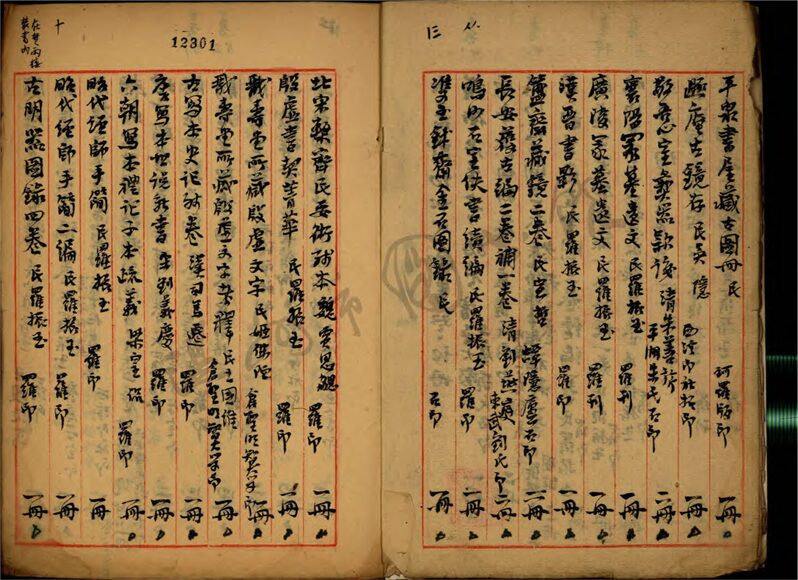 平泉書屋藏古圖冊 民 珂羅版印 一冊
遯庵古鏡存 民吳隱 西泠印社拓印 一冊
敬吾心室彝器款識 清朱善旂 平湖朱氏石印 二冊
襄陽冢墓遺文 民羅振玉 羅刊 一冊
廣陵冢墓遺文 民羅振玉 羅刊 一冊
漢晉書影 民羅振玉 羅印 一冊
簠齋藏鏡二卷 民 石印 二冊
長安獲古編二卷補一卷 清劉燕庭 東武劉氏印 二冊
鳴沙石室佚書續編 民羅振玉 羅印 一冊
金石圖錄 民 石印 一冊
十三
北宋槧齊民要術殘本 魏賈思勰 羅印 一冊
殷虛書契菁華 民羅振玉 羅印 一冊
戩壽堂所藏殷虛文字 民姬佛陀 倉聖明智大學印 一冊
戩壽堂所藏殷虛文字考釋 民王國維 倉聖明智大學印 一冊
古寫本史記殘卷 漢司馬遷 羅印 一冊
唐寫本世說新書 宋劉義慶 羅印 一冊
六朝寫本禮記子本疏義 羅印 一冊
昭代經師手簡 民羅振玉 羅印 一冊
昭代經師手簡二編 民羅振玉 羅印 一冊
古明器圖錄四卷 民羅振玉 羅印 一冊
12301
十